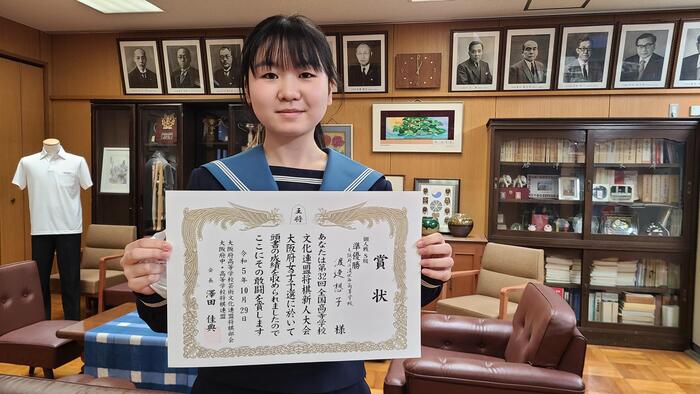 王将
賞状
個人戦S級
準優勝
様
あなたは第32回全国高等学校
文化連盟将棋新人大会
大阪府女子予選に於いて
頭書の成績を収められましたので
ここにその敢闘を賞します
令和5年10月29日
大阪府高等学校芸術文化連盟将棋部会
大阪府中・高等学校将棋連盟
会長 澤田佳典